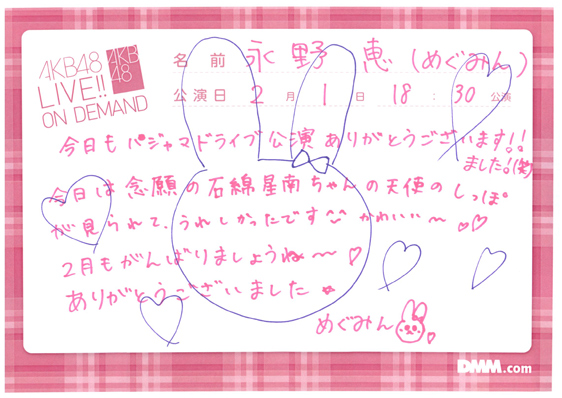 AKB48
LIVE!!
ON DEMAND
AKB
48
名前 永野 恵 (めぐみん)
公演日 2 月 1 日 18 : 30 公演
今日もパジャマドライブ公演ありがとうございます!!
ました!(笑)
今日は念願の石綿星南ちゃんの天使のしっぽ
が見られて、うれしかったです かわいい〜
2月もがんばりましょうね〜
ありがとうございました
めぐみん
DMM.com